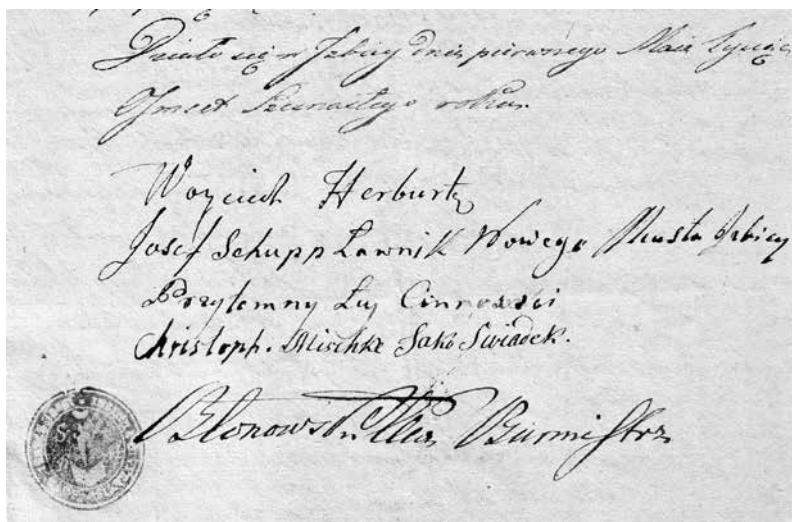 Działo się w Izbicy dnia pierwszego Maia Tysiąc
Ośmset Szesnastego roku
Woyciech Herburtz
Josef Schupp Ławnik Nowego Miasta Izbicy
Przytemny Ley Cinnosci
Christoph. Mischke Jako Swiadek.
Błonowski Burmistrz